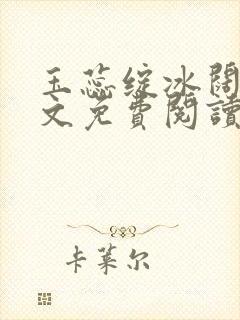 玉蕊绽冰阔
文免費閱讀
卡莱尔